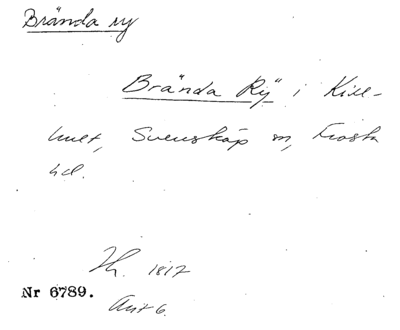 Brända ry
Brända Rÿ i Kill-
hult, Svensköp sn, Frosta
hd.
Th. 1812
Nr 6789.
Ant 6.